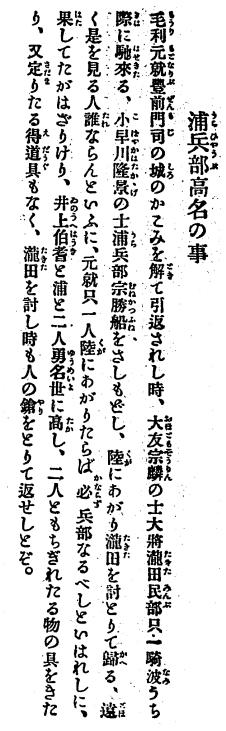 浦兵部高名の事
毛利元就豊前門司の城のかこみを解て引返されし時、大友宗麟の士大將瀧田民部只一騎波うち
際に馳來る、小早川隆景の士浦兵部宗勝船をさしもどし、陸にあがり瀧田を討とりて歸る、遠
く是を見る人誰ならんといふに、元就只一人陸にあがりたらば必兵部なるべしといはれしに、
果してたがはざりけり、井上伯耆と浦と二人勇名世に高し、二人ともちぎれたる物の具をきた
り、又定りたる得道具もなく、瀧田を討し時も人の鎗をとりて返せしとぞ。